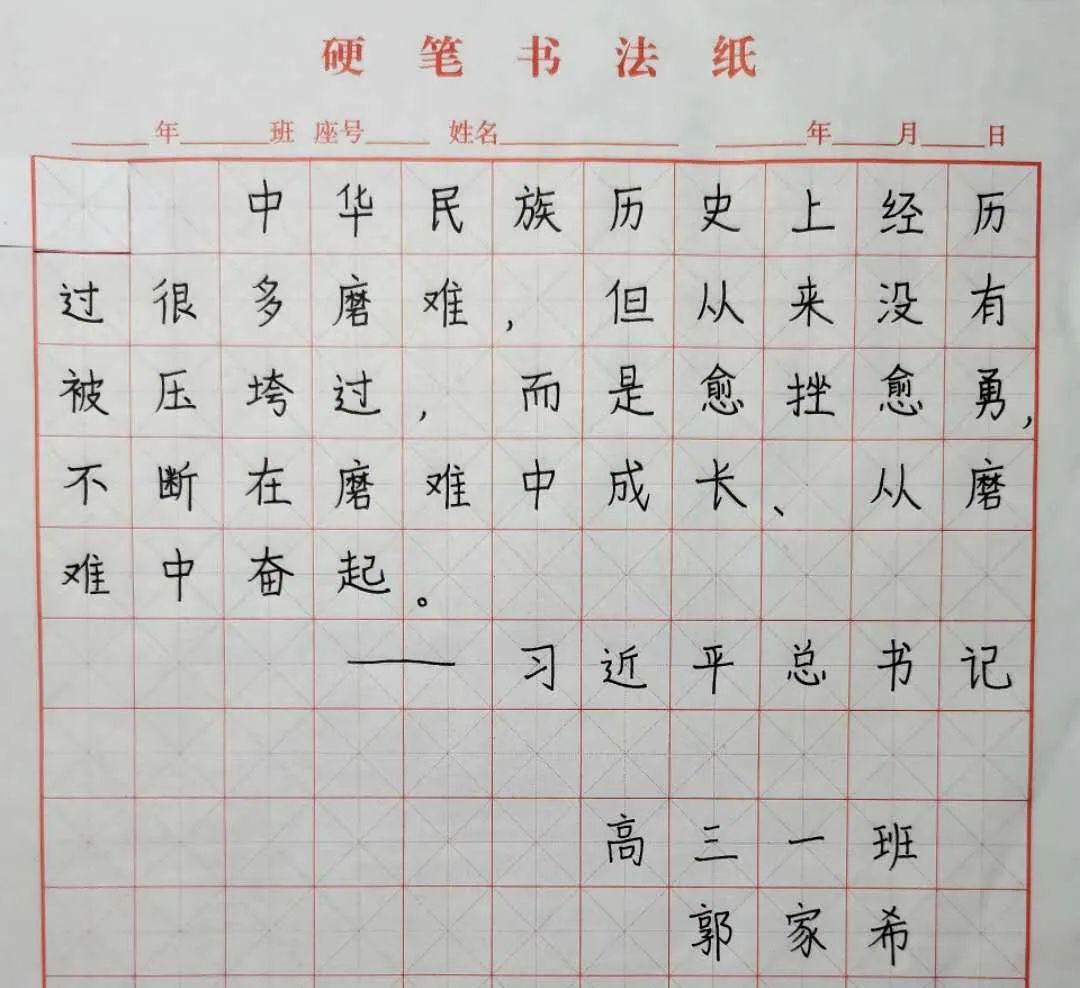 硬笔书法纸
年 班 座号 姓名 年 月 日
中华民族历史上经历
过很多磨难，但从来没有
被压垮过，而是愈挫愈勇，
不断在磨难中成长、从磨
难中奋起。
——习近平总书记
高三一班
郭家希